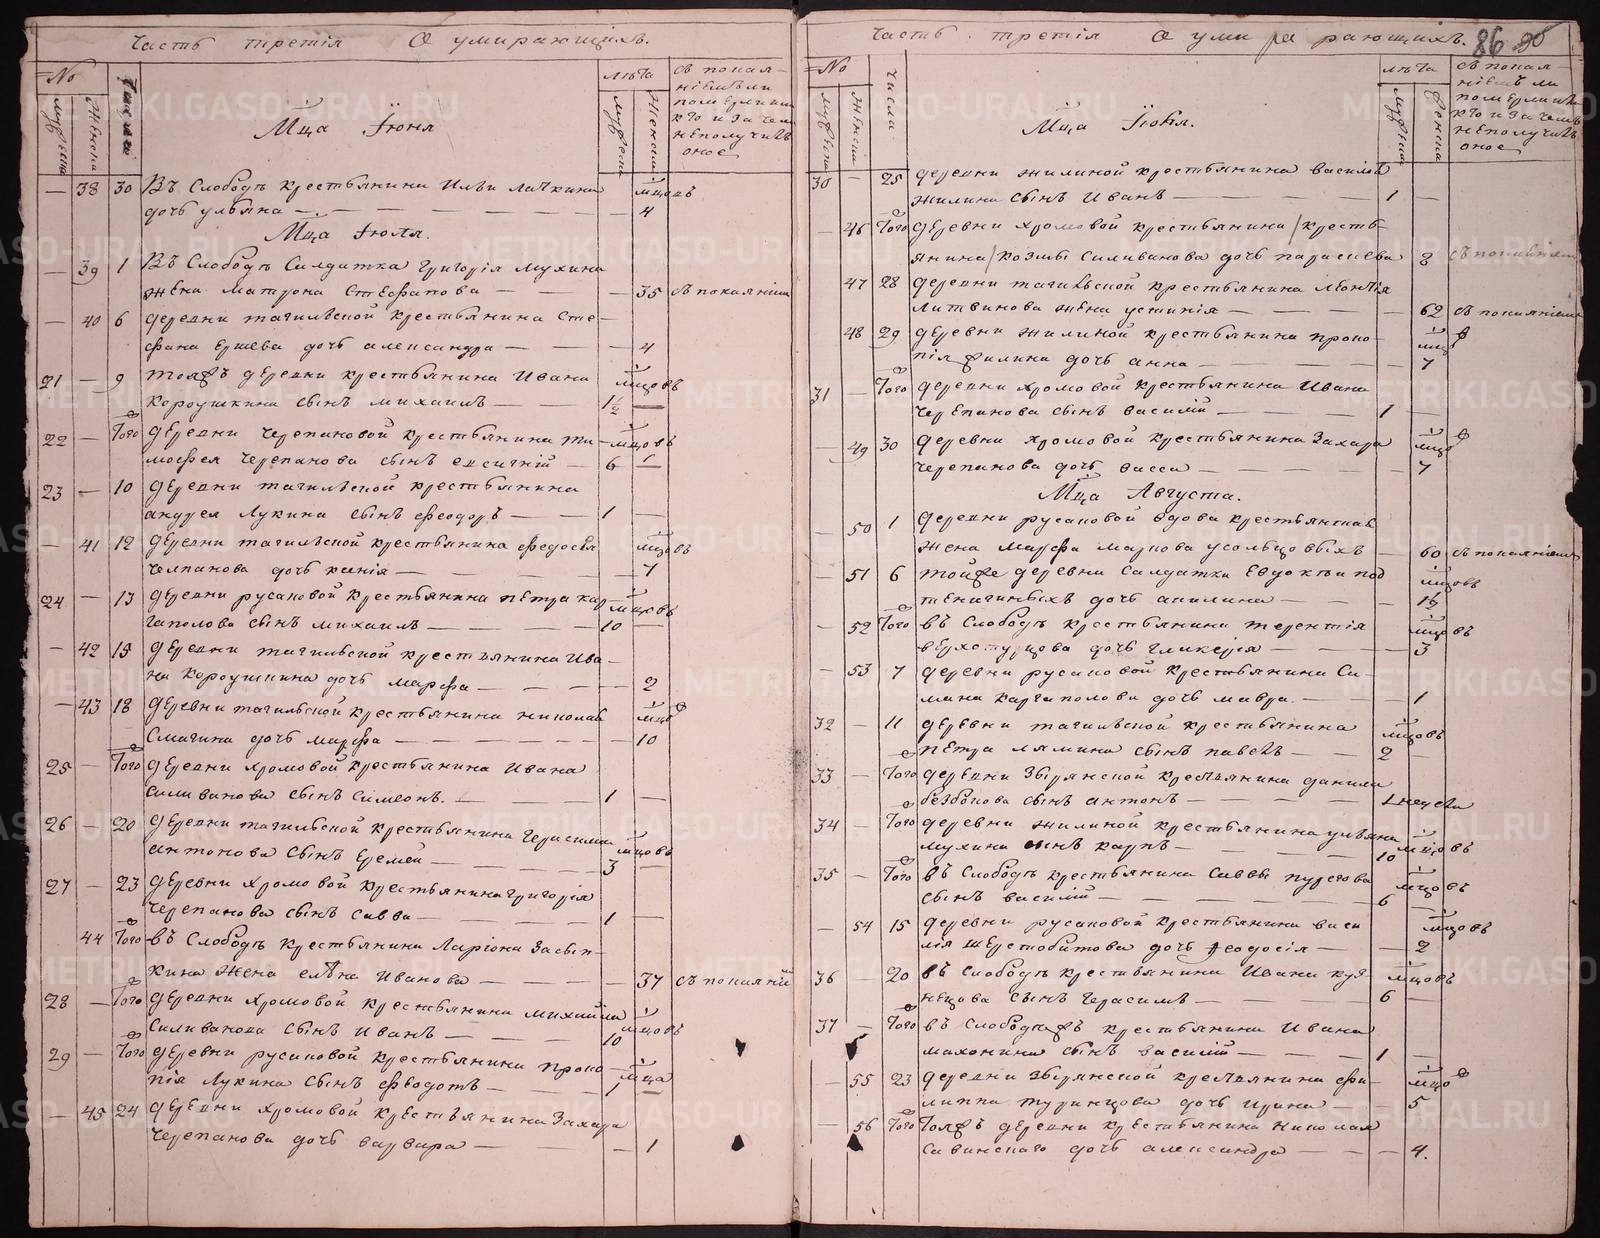 Часть третія О умирающихъ.
№
лѣта
мужеска
женска
числа
Мца Іюня
38 30 Въ Слободѣ крестьянина Ильи
дочь ульяна 4
Мца Іюля.
39 1 Въ Слободѣ Салдатка Григорія Мухина
жена Матрона Стефанова 35 съ покаяніемъ
40 6 деревни тагильской крестьянина Сте-
фана Ершева дочь александра 4
21 9 тояжъ деревни крестьянина Ивана мцовъ
Короушкина сынъ михаилъ 1½
22 Тогож деревни черепановой крестьянина ти- мцовъ
мофея Черепанова сынъ 6
23 10 деревни тагильской крестьянина
андрея Лукина сынъ феодоръ 1
41 12 деревни тагильской крестьянина федосѣя мцовъ
Челпанова дочь ксенія 7
24 13 деревни русаковой крестьянина петра кар- мцовъ
гаполова сынъ михаилъ 10
42 15 деревни тагильской крестьянина Ива-
на Короушкина дочь марфа 2
43 18 деревни тагильской крестьянина николая мцо
Смагина дочь марфа 10
25 Тогож деревни хромовой крестьянина Ивана
Силиванова сынъ Симеонъ. 1
26 20 деревни тагильской крестьянина Герасима мцовъ
антонова сынъ Еремей 3
27 23 деревни хромовой крестьянина григорія
Черепанова сынъ савва 1
44 Тогож въ Слободѣ крестьянина Ларіона Засып-
кина жена елѣна Иванова 37 съ покаяній
28 Тогож деревни хромовой крестьянина михаила
Силиванова сынъ Иванъ 10 мцовъ
29 Тогож деревни русаковой крестьянина проко- мца
пія Лукина сынъ федотъ 1
45 24 деревни хромовой крестьянина Захара
Черепанова дочь варвара 1
Часть третія О уми ра рающихъ. 86
№
числа
лѣта
Мца Іюля.
30 25 деревни жилиной крестьянина василія
жилина сынъ Иванъ 1
46 Тогож деревни хромовой крестьянина /кресть-
янина/ козмы Силиванова дочь параскева 8
47 28 деревни тагильской крестьянина Леонтія
Литвинова жена устинія 62 съ покаяніемъ
48 29 деревни жилиной крестьянина проко- мцо
пія филина дочь анна 7
31 Тогож деревни хромовой крестьянина Ивана
Черепанова сынъ василій 1
49 30 деревни хромовой крестьянина Захара мцо
черепанова дочь васса 7
Мца Августа.
50 1 деревни русаковой вдова крестьянская
жена марфа маркова усольцовыхъ 60 съ покаяніемъ
51 6 тойже деревни Салдатки Евдокѣи под мцовъ
дочь акилина 1½
52 Тогож въ Слободѣ крестьянина терентія мцовъ
верхотурцова дочь гликерія 3
53 7 деревни русаковой крестьянина Си-
мана каргаполова дочь мавра. 1
32 11 деревни тагильской крестьянина мцовъ
петра лямина сынъ павелъ 2
33 Тогож деревни Збірянской крестьянина данила
безбокова сынъ антонъ 1 недели
34 Тогож деревни жилиной крестьянина ульяна
мухина сынъ карпъ 10 мцовъ
35 Тогож въ Слободѣ крестьянина Саввы пурегова мцовъ
сынъ василій 6
54 15 деревни русаковой крестьянина васи мцовъ
лія шерстобитова дочь феодосія 2
36 20 въ Слободѣ крестьянина Ивана куз- мцовъ
нецова сынъ герасимъ 6
37 Тогож въ Слободѣжъ крестьянина Ивана
махонина сынъ василій 1
55 23 деревни Збірянской крестьянина фи- мцо
липпа туринцова дочь ирина 5
56 Тогож Тояжъ деревни крестьянина николая
Савинскаго дочь александра 4.